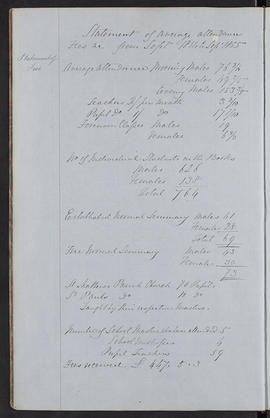 Statement of average attendance
Fees &c from Sept 1854 to Sept 1855
Statement of
Fees
Average attendance Morning Males
Females
Evening Males
Teachers
Pupil do
Forenoon Classes Males 19
Females
No of Individual Students on the Books
Males 626
Females 138
Total 764
Established Normal Seminary Males 41
Females 28
Total 69
Free Normal Seminary Males 43
Females 30
73
St Matthews Parish Church 70 Pupils
St Pauls do do
Taught by their respective Masters
Number of School Masters have attended 5
School Mistresses 4
Pupil Teachers 59
Fees received £ 447. 5. 3